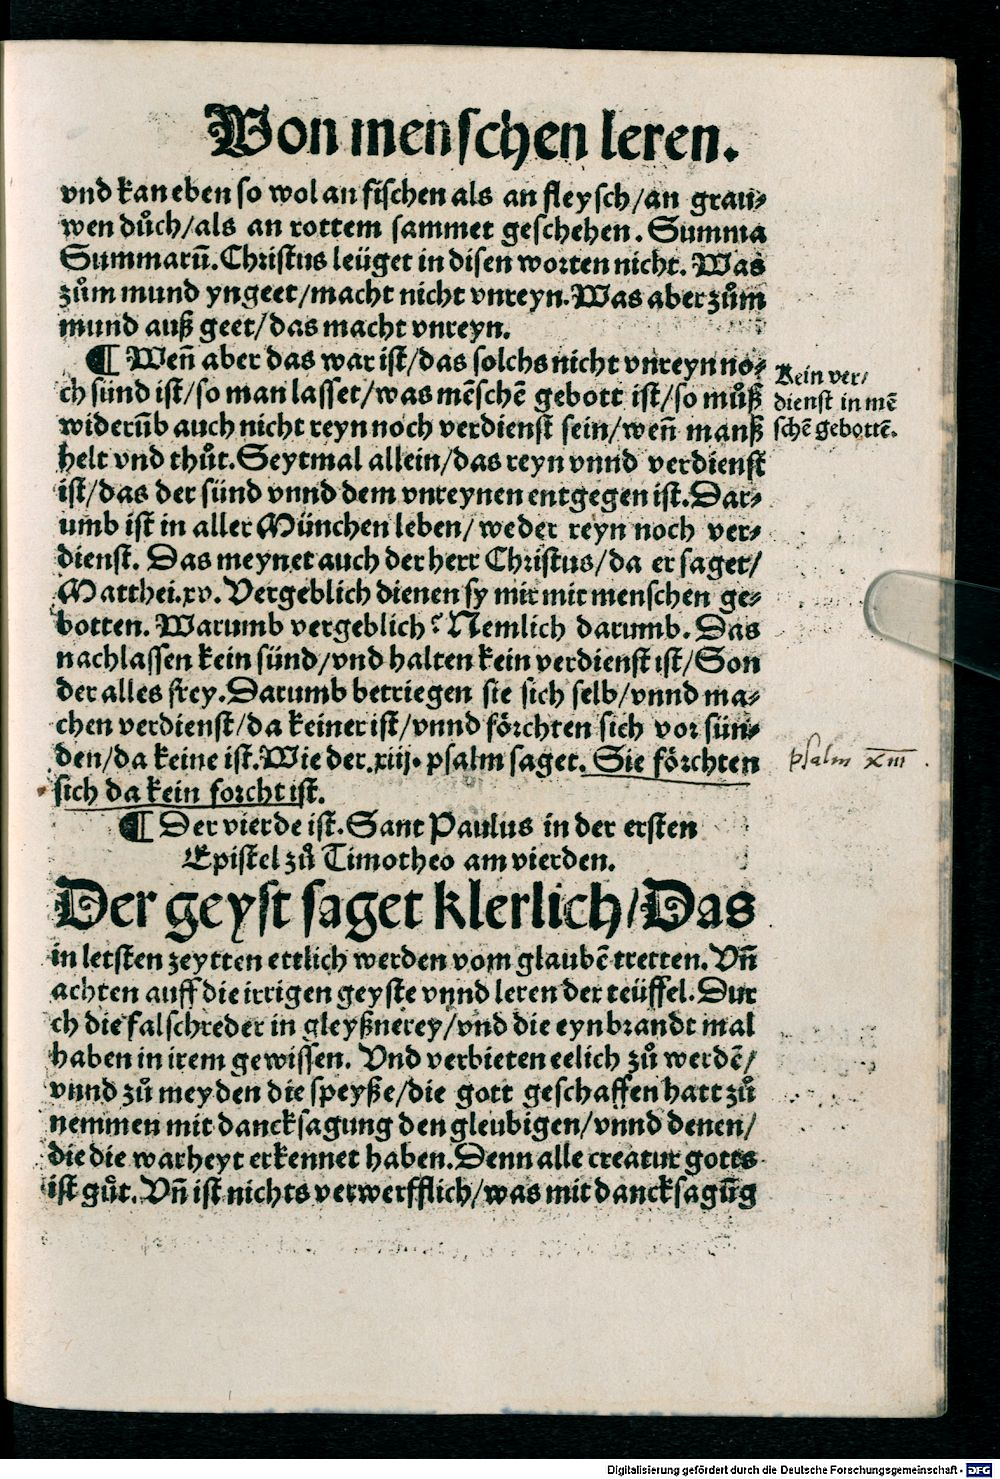 Von menschen leren.
vnd kan eben so wol an fischen als an fleysch/an grau⸗
wen duͦch/als an rottem sammet geschehen. Summa
Summarū. Christus leüget in disen worten nicht. Was
zuͦm mund yngeet/macht nicht vnreyn. Was aber zuͦm
mund auß geet/das macht vnreyn.
¶ Wen̄ aber das war ist/das solchs nicht vnreyn no⸗
ch sünd ist/so man lasset/was mēschē gebott ist/so muͦß
widerūb auch nicht reyn noch verdienst sein/wen̄ manß
helt vnd thuͦt. Seytmal allein/das reyn vnnd verdienst
ist/das der sünd vnnd dem vnreynen entgegen ist. Dar⸗
umb ist in aller München leben/weder reyn noch ver⸗
dienst. Das meynet auch der herr Christus/da er saget/
Matthei.xv. Vergeblich dienen sy mir mit menschen ge⸗
botten. Warumb vergeblich? Nemlich darumb. Das
nachlassen kein sünd/vnd halten kein verdienst ist/Son
der alles frey. Darumb betriegen sie sich selb/vnnd ma⸗
chen verdienst/da keiner ist/vnnd förchten sich vor sün⸗
den/da keine ist. Wie der .xiij. psalm saget. Sie förchten
sich da kein forcht ist.
Kein ver/
dienst in mē
schē gebottē.
psalm XIII.
¶ Der vierde ist. Sant Paulus in der ersten
Epistel zuͦ Timotheo am vierden.
Der geyst saget klerlich/Das
in letsten zeytten ettlich werden vom glaubē tretten. Vn̄
achten auff die irrigen geyste vnnd leren der teüffel. Dur
ch die falschreder in gleyßnerey/vnd die eynbrandt mal
haben in irem gewissen. Vnd verbieten eelich zuͦ werdē/
vnnd zuͦ meyden die speyße/die gott geschaffen hatt zuͦ
nemmen mit dancksagung den gleubigen/vnnd denen/
die die warheyt erkennet haben. Denn alle creatur gotts
ist guͦt. Vn̄ ist nichts verwerfflich/was mit dancksagūg
Digitalisierung gefördert durch die Deutsche Forschungsgemeinschaft - DFG